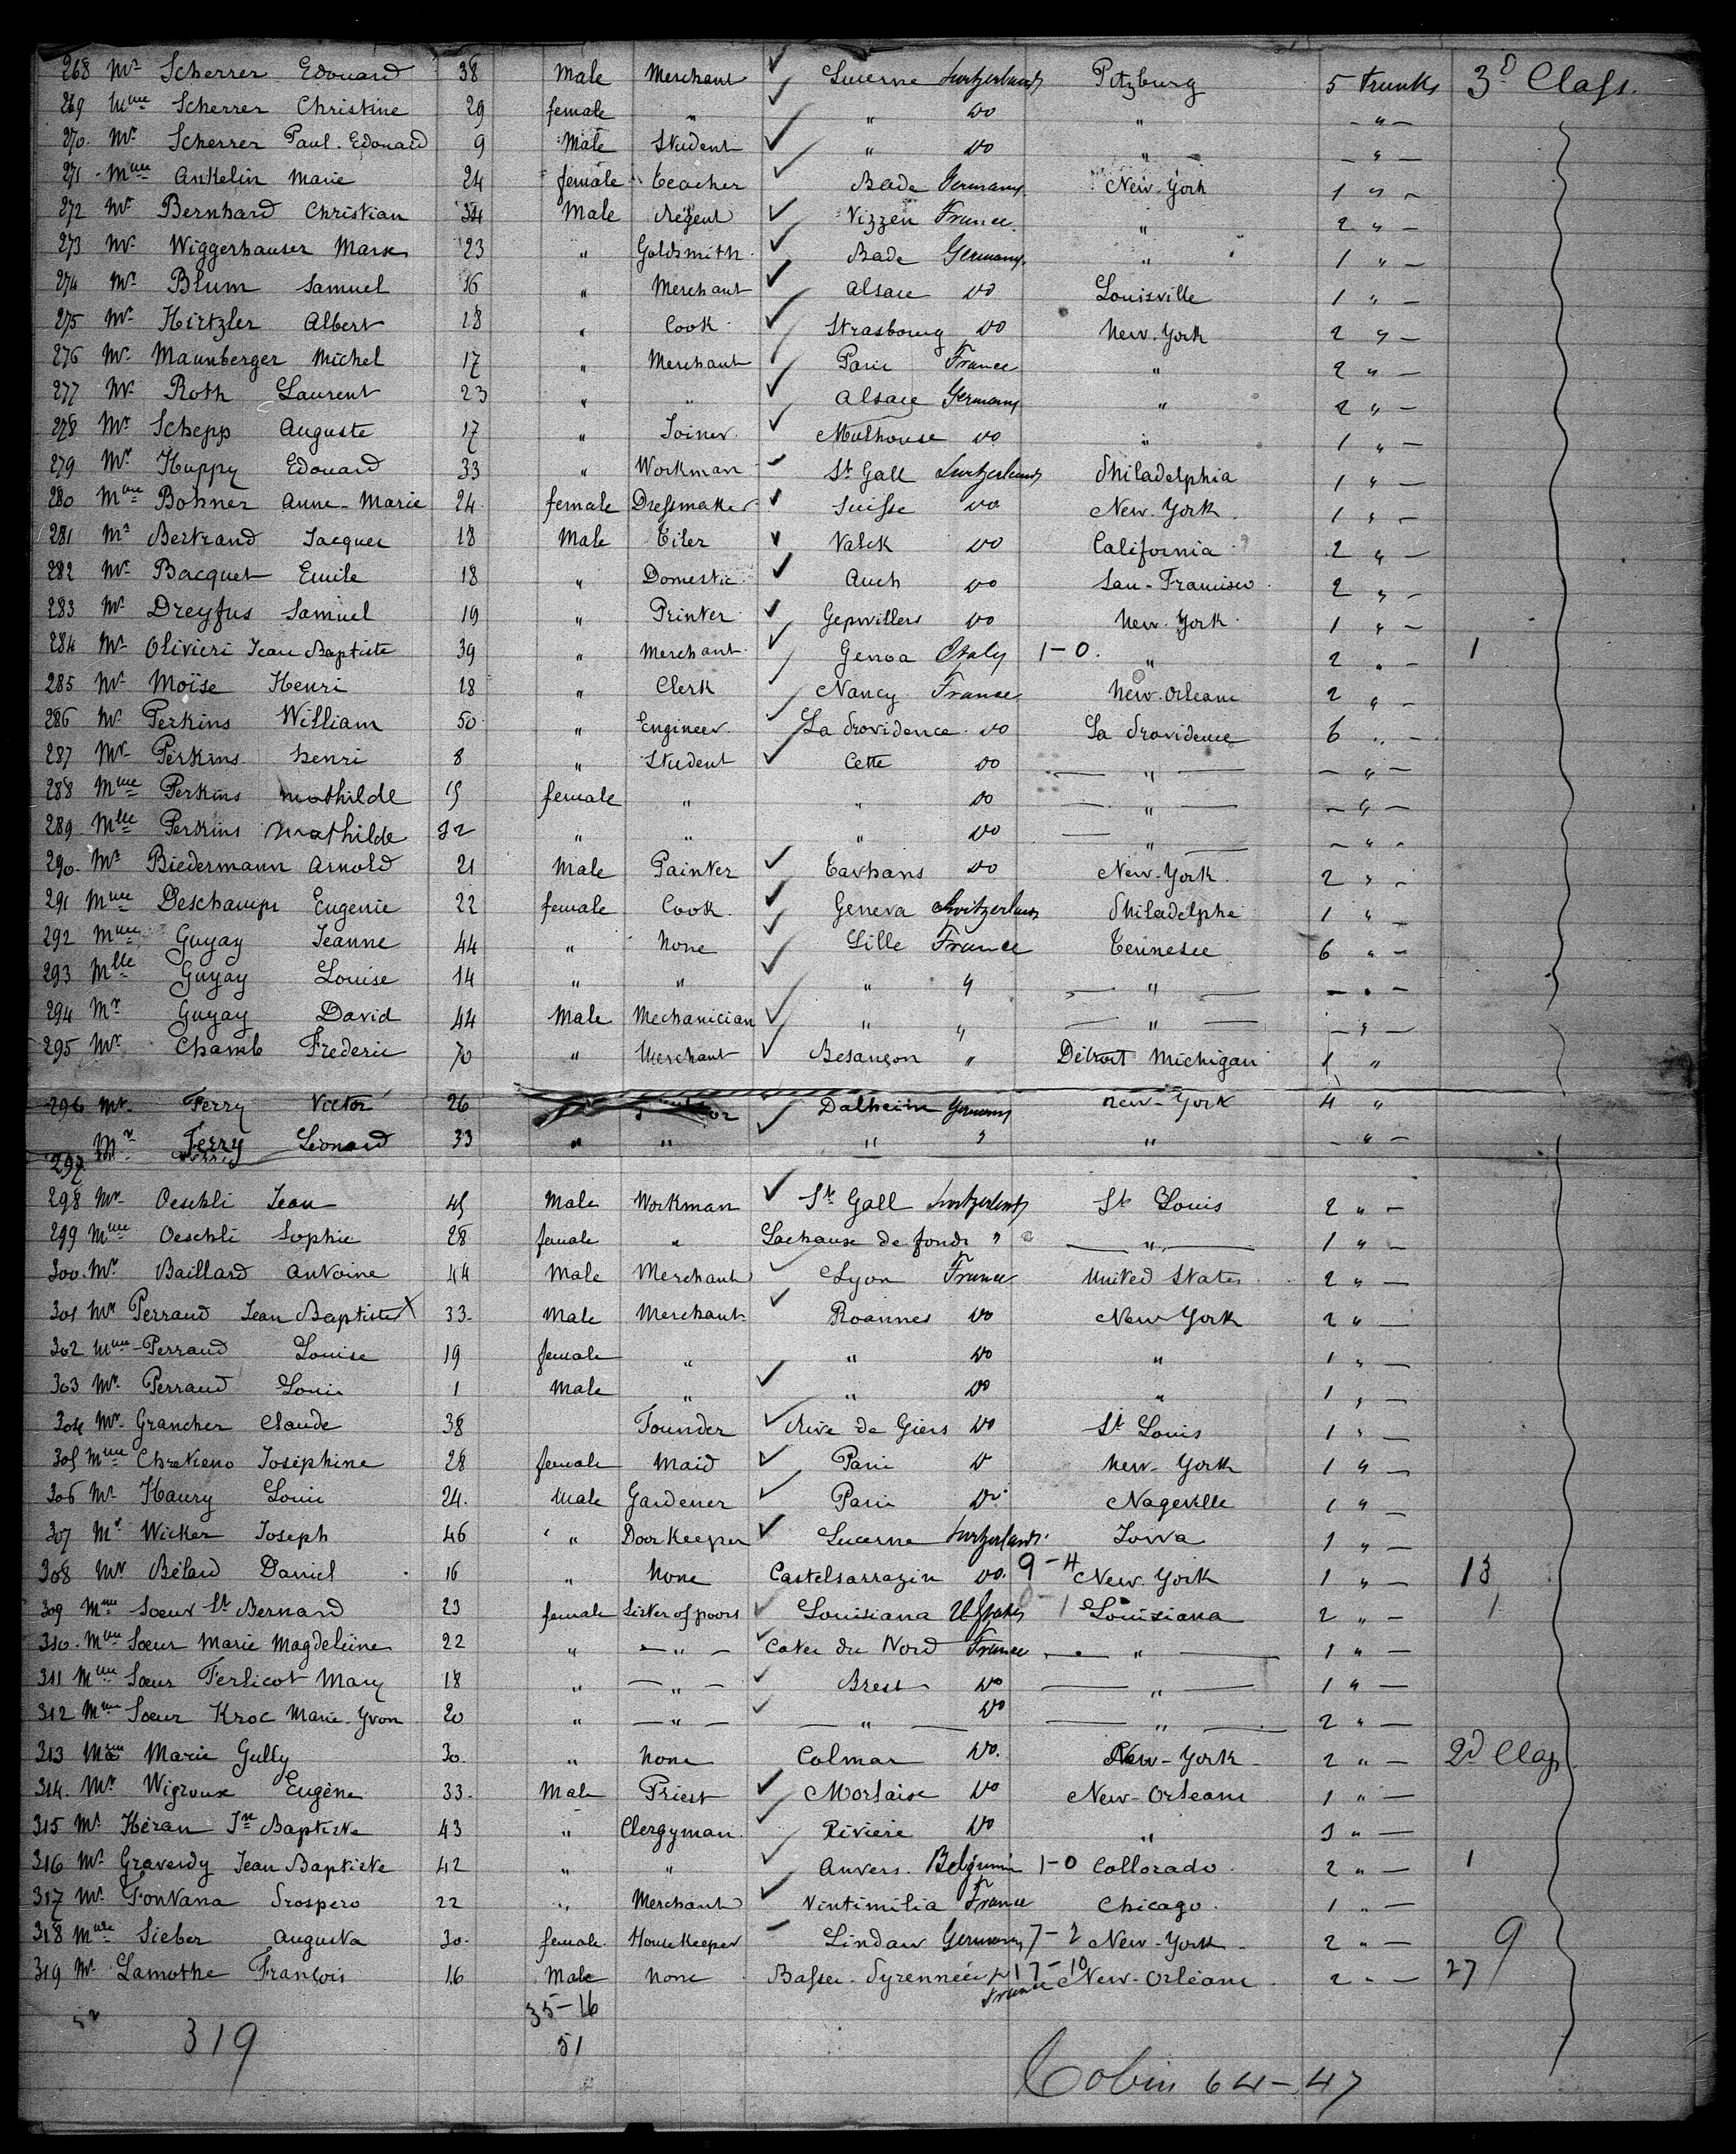 268 Mr Scherrer Edouard 38 Male Merchant Lucerne Switzerland Pitzburg 5 trunks 3d Class.
269 Mme Scherrer Christine 29 female " " do " - " -
270. Mr Scherrer Paul. Edouard 9 Male Student " do " - " -
271 Mme Ankelin Marie 24 female teacher Bade Germany New-York 1 " -
272 Mr Bernhard Christian 34 Male Regent Vizzen France " 2 " -
273 Mr Wiggerhauser Mark 23 " Goldsmith Bade Germany " 1 " -
274 Mr Blum Samuel 16 " Merchant Alsace do Louisville 1 " -
275 Mr Hirtzler Albert 28 " Cook Strasbourg do New-York 2 " -
276 Mr Maunberger Michel 17 " Merchant Paris France " 2 " -
277 Mr Roth Laurent 23 " " Alsace Germany " 2 " -
278 Mr Schepp Auguste 17 " Joiner Mulhouse do " 1 " -
279 Mr Huppy Edouard 33 " Workman St Gall Switzerland Philadelphia 1 " -
280 Mme Bohner Anne-Marie 24 female Dressmaker Suisse do New-York 1 " -
281 Mr Bertrand Jacques 18 Male Tiler Valck do California 2 " -
282 Mr Bacquet Emile 18 " Domestic Auch do San-Francisco 2 " -
283 Mr Dreyfus Samuel 19 " Printer Gepwillers do New-York 1 " -
284 Mr Olivieri Jean Baptiste 39 " Merchant Genoa Italy 1-0. " 2 " - 1
285 Mr Moïse Henri 18 " Clerk Nancy France New-Orleans 2 " -
286 Mr Perkins William 50 " Engineer La Providence do La Providence 6 " -
287 Mr Perkins henri 8 " Student Cette do - " - - " -
288 Mme Perkins mathilde female " " do - " - - " -
289 Mlle Perkins Mathilde " " " do - " - - " -
290. Mr Biedermann Arnold 21 Male Painter Tavhans do New-York 2 " -
291 Mme Deschamps Eugenie 22 female Cook Geneva Switzerland Philadelphe 1 " -
292 Mme Guyay Jeanne 44 " None Lille France Tennesee 6 " -
293 Mlle Guyay Louise 14 " " " " - " - - " -
294 Mr Guyay David 44 Male Mechanician " " - " - - " -
295 Mr Chamb Frederic 70 " Merchant Besançon " Détroit Michigan 1 "
296 Mr Ferry Victor 26 Dalheim Germany New-York 4 "
297 Mr Ferry Léonard 33 " " " " " - " -
298 Mr Oeschli Jean 45 Male Workman St Gall Switzerland St Louis 2 " -
299 Mme Oeschli Sophie 28 female " Lachause de fonds " - " - 1 " -
300. Mr Baillard Antoine 44 Male Merchant Lyon France United States 2 " -
301 Mr Perraud Jean Baptiste X 33. Male Merchant Roannes do New York 2 " -
302 Mme Perraud Louise 19 female " " do " 1 " -
303 Mr Perraud Louis 1 Male " " do " 1 " -
304 Mr Grancher Claude 38 Founder Rive de Giers do St Louis 1 " -
305 Mme Chretieno Joséphine 28 female Maid Paris do New-York 1 " -
306 Mr Haury Louis 24. Male Gardener Paris do Nageville 1 " -
307 Mr Wicker Joseph 46 " Door Keeper Lucerne Switzerland Iowa 1 " -
308 Mr Bélard Daniel 16 " None Castelsarrazin do. 9-4 New-York 1 " - 13
309 Mme Soeur St Bernard 23 female Sister of poors Louisiana U States 1 Louisiana 2 " - 1
310. Mme Soeur Marie Magdeleine 22 " - " - Cotes du Nord France - " - 1 " -
311 Mme Soeur Ferlicot Mary 18 " - " - Brest do - " - 1 " -
312 Mme Soeur Kroc Marie-Yvon 20 " - " - - " - do - " - 2 " -
313 Mme Marie Gully 30. " None Colmar do. New-York 2 " - 2d Class
314. Mr Wigroux Eugène 33. Male Priest Morlaise do New-Orleans 1 " -
315 Mr Héran Jn Baptiste 43 " Clergyman Riviere do " 1 " -
316 Mr Graverdy Jean Baptiste 42 " " Anvers Belgium 1-0 Collorado 2 " - 1
317 Mr Fontana Prospero 22 " Merchant Vintimilia France Chicago 1 " -
318 Mme Sieber Augusta 30. female House Keeper Lindau Germany 7-2 New-York 2 " - 9
319 Mr Lamothe François 16 Male None Basses-Pyrennées France 17-10 New-Orléans 2 " - 27
35-16
319 51
64-47